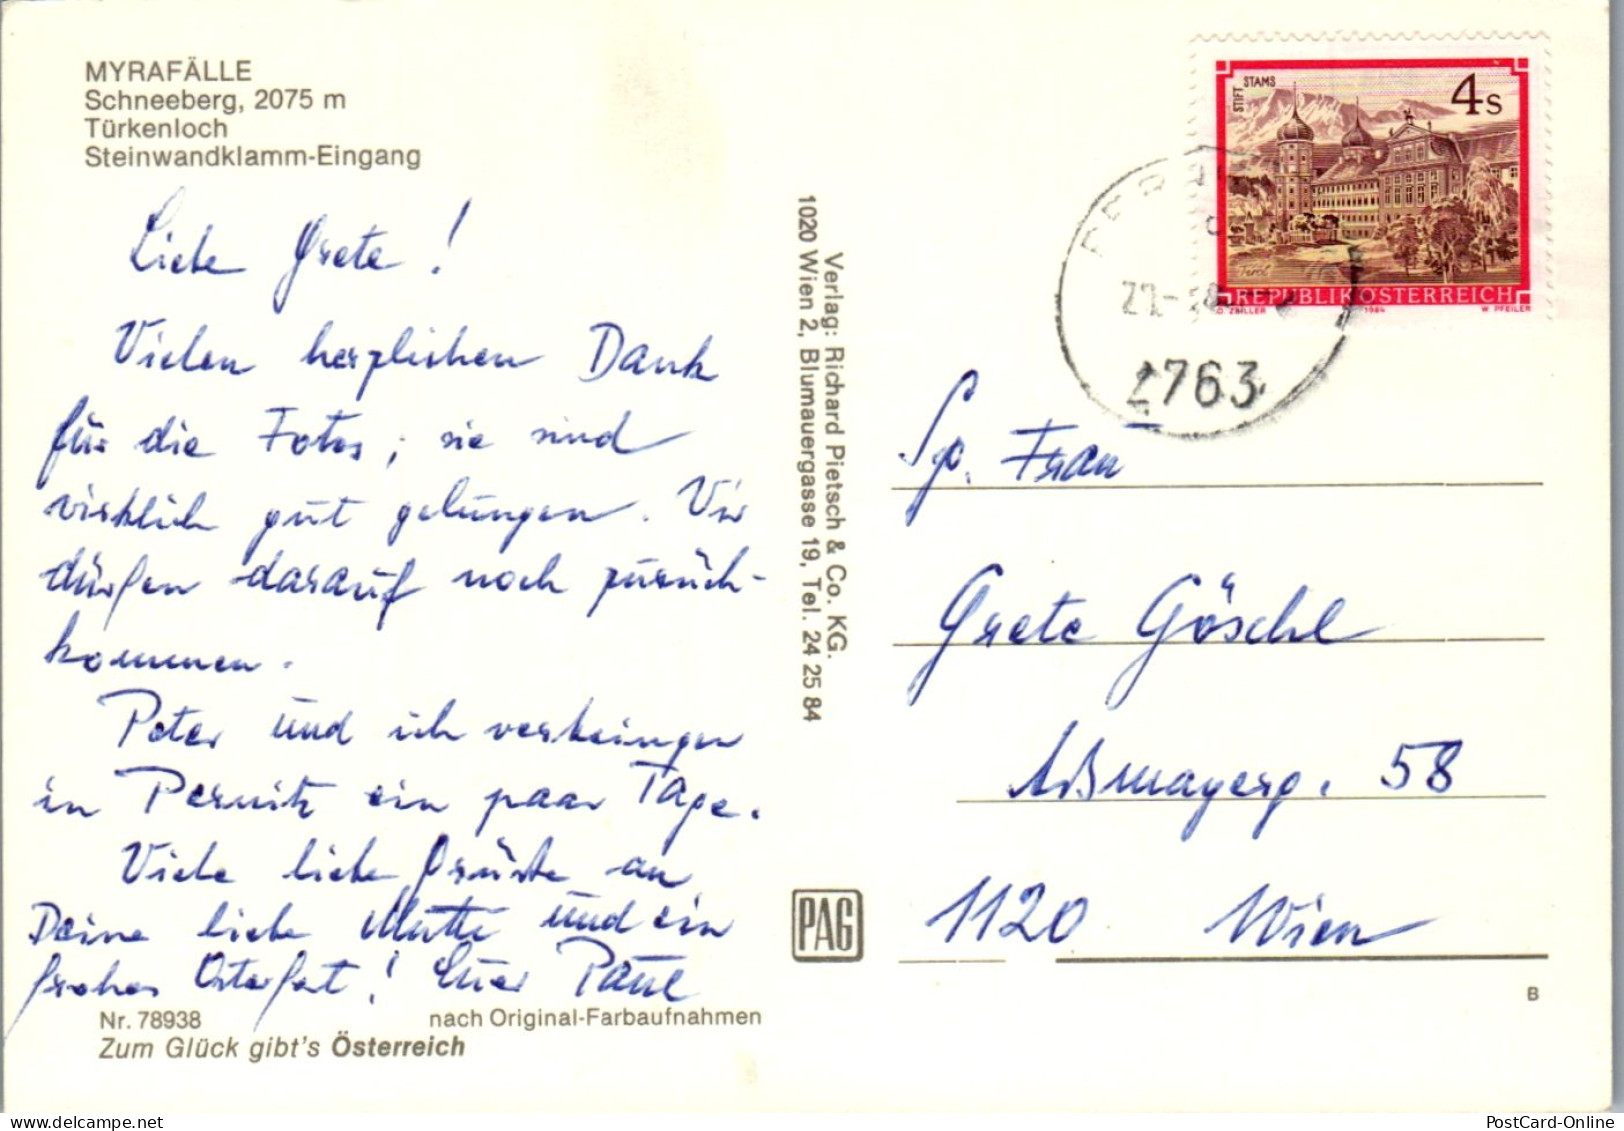 MYRAFÄLLE
Schneeberg, 2075 m
Türkenloch
Steinwandklamm-Eingang
Liebe Grete!
Vielen herzlichen Dank
für die Fotos, sie sind
wirklich gut gelungen. Wir
dürfen darauf noch zurück-
kommen.
Peter und ich verbringen
in Pernitz ein paar Tage.
Viele liebe Grüße an
Deine liebe Mutti und ein
frohes Osterfest! Euer Paul
Nr. 78938 nach Original-Farbaufnahmen
Zum Glück gibt's Österreich
Verlag: Richard Pietsch & Co. KG.
1020 Wien 2, Blumauergasse 19, Tel. 24 25 84
PAG
STIFT STAMS
4 S
Tirol
REPUBLIK ÖSTERREICH
O. ZEILLER 1984 W. PFEILER
2763
Sg. Frau
Grete Göschl
Aßmayerg. 58
1120 Wien
B
PostCard-Online